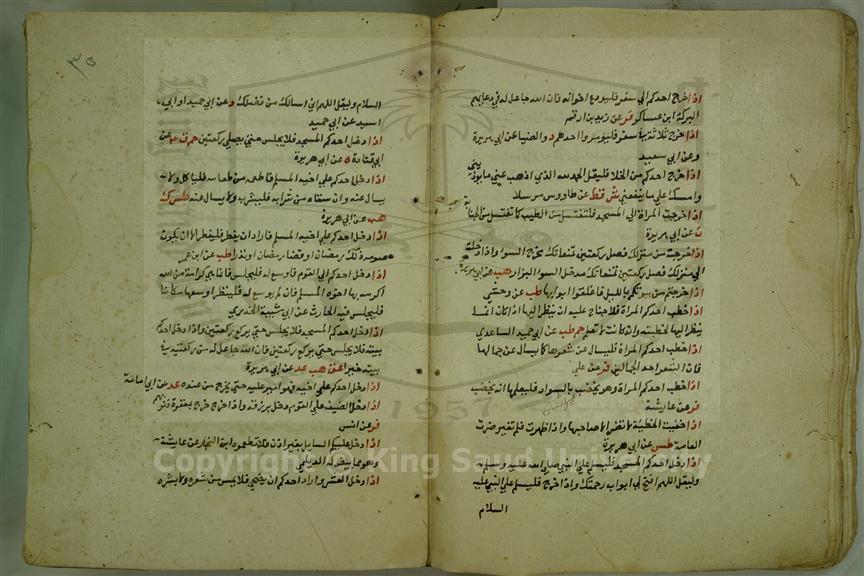 اذا خرج احدكم الي سفر فليودع اخوانه فان الله جاعل له في دعايهم
البركة ابن عساكر فر عن زيد بن ارقم
اذا خرج ثلاثة في سفر فليومروا احدهم د والضيا عن ابي هريرة
وعن ابي سعيد
اذا خرج احدكم من الخلا فليقل الحمد لله الذي اذهب عني ما يوذيني
وامسك علي ما ينفعني ش قط عن طاووس مرسلا
اذا خرجت المراة الي المسجد فلتغتسل من الطيب كما تغتسل من الجنابة
ن عن ابي هريرة
اذا خرجت من منزلك فصل ركعتين تمنعانك مخرج السوا واذا دخلت
الي منزلك فصل ركعتين تمنعانك مدخل السوا البزار هب عن ابي هريرة
اذا خرجتم من بيوتكم بالليل فاغلقوا ابوابها طب عن وحشي
اذا خطب احدكم المراة فلا جناح عليه ان ينظر اليها اذا كان انما
ينظر اليها لخطبته وان كانت لا تعلم حم طب عن ابي حميد الساعدي
اذا خطب احدكم المراة فليسال عن شعرها كما يسال عن جمالها
فان الشعر احد الجمالين فر عن علي
اذا خطب احدكم المراة وهو يخضب بالسواد فليعلمها انه يخضب
فر عن عايشة
اذا خفيت الخطيئة لا تضر الا صاحبها واذا ظهرت فلم تغير ضرت
العامة طس عن ابي هريرة
اذا دخل احدكم المسجد فليسلم علي النبي صلي الله عليه وسلم
وليقل اللهم افتح لي ابواب رحمتك واذا خرج فليسلم علي النبي عليه
السلام
٣٥
السلام وليقل اللهم اني اسالك من فضلك د عن ابي حميد او ابي
اسيد عن ابي حميد
اذا دخل احدكم المسجد فلا يجلس حتي يصلي ركعتين حم ق عن
ابي قتادة ه عن ابي هريرة
اذا دخل احدكم علي اخيه المسلم فاطعمه من طعامه فلياكل ولا
يسال عنه وان سقاه من شرابه فليشرب ولا يسال عنه طس ك
هب عن ابي هريرة
اذا دخل احدكم علي اخيه المسلم فاراد ان يفطر فليفطر الا ان يكون
صومه ذلك رمضان او قضا رمضان او نذرا طب عن ابن عمر
اذا دخل احدكم الي القوم فاوسع له فليجلس فانما هي كرامة من الله
اكرمه بها اخوه المسلم فان لم يوسع له فلينظر اوسعها مكانا
فليجلس فيه الحارث عن ابي شيبة الخدري
اذا دخل احدكم المسجد فلا يجلس حتي يركع ركعتين واذا دخل احدكم
بيته فلا يجلس حتي يركع ركعتين فان الله جاعل له من ركعتيه في
بيته خيرا عق هب عد عن ابي هريرة
اذا دخل احدكم علي اخيه فهو امير عليه حتي يخرج من عنده عد عن ابي امامة
اذا دخل الضيف علي القوم دخل برزقه واذا خرج خرج بمغفرة ذنوبهم
فر عن انس
اذا دخل عليكم السايل بغير اذن فلا تطعموه ابن النجار عن عايشة
وهو مما بيض له الديلمي
اذا دخل العشر واراد احدكم ان يضحي فلا يمس من شعره ولا بشره
Copyright © King Saud University
1957